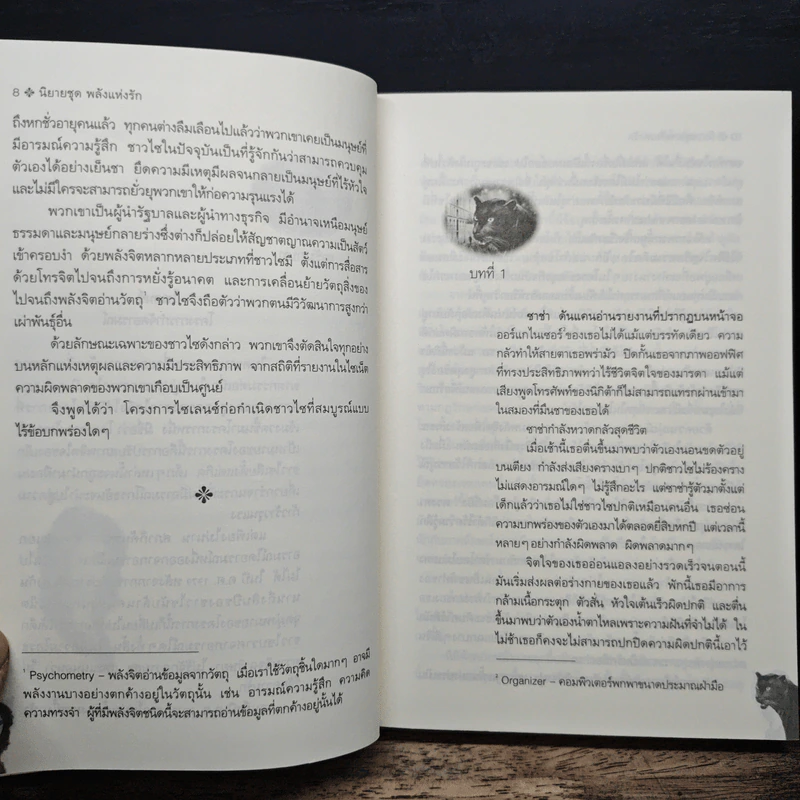 8 ❖ นิยายชุด พลังแห่งรัก
ถึงหกชั่วอายุคนแล้ว ทุกคนต่างลืมเลือนไปแล้วว่าพวกเขาเคยเป็นมนุษย์ที่
มีอารมณ์ความรู้สึก ชาวไซในปัจจุบันเป็นที่รู้จักกันว่าสามารถควบคุม
ตัวเองได้อย่างเย็นชา ยึดความมีเหตุมีผลจนกลายเป็นมนุษย์ที่ไร้หัวใจ
และไม่มีใครจะสามารถยั่วยุพวกเขาให้ก่อความรุนแรงได้
พวกเขาเป็นผู้นำรัฐบาลและผู้นำทางธุรกิจ มีอำนาจเหนือมนุษย์
ธรรมดาและมนุษย์กลายร่างซึ่งต่างก็ปล่อยให้สัญชาตญาณความเป็นสัตว์
เข้าครอบงำ ด้วยพลังจิตหลากหลายประเภทที่ชาวไซมี ตั้งแต่การสื่อสาร
ด้วยโทรจิตไปจนถึงการหยั่งรู้อนาคต และการเคลื่อนย้ายวัตถุสิ่งของ
ไปจนถึงพลังจิตอ่านวัตถุ¹ ชาวไซจึงถือตัวว่าพวกตนมีวิวัฒนาการสูงกว่า
เผ่าพันธุ์อื่น
ด้วยลักษณะเฉพาะของชาวไซดังกล่าว พวกเขาจึงตัดสินใจทุกอย่าง
บนหลักแห่งเหตุผลและความมีประสิทธิภาพ จากสถิติที่รายงานในไซเน็ต
ความผิดพลาดของพวกเขาเกือบเป็นศูนย์
จึงพูดได้ว่า โครงการไซเลนซ์ก่อกำเนิดชาวไซที่สมบูรณ์แบบ
ไร้ข้อบกพร่องใดๆ
¹ Psychometry – พลังจิตอ่านข้อมูลจากวัตถุ เมื่อเราใช้วัตถุชิ้นใดมากๆ อาจมี
พลังงานบางอย่างตกค้างอยู่ในวัตถุนั้น เช่น อารมณ์ความรู้สึก ความคิด
ความทรงจำ ผู้ที่มีพลังจิตชนิดนี้จะสามารถอ่านข้อมูลที่ตกค้างอยู่นั้นได้
บทที่ 1
ซาช่า ดันแคนอ่านรายงานที่ปรากฏบนหน้าจอ
ออร์แกไนเซอร์²ของเธอไม่ได้แม้แต่บรรทัดเดียว ความ
กลัวทำให้สายตาเธอพร่ามัว ปิดกั้นเธอจากภาพออฟฟิศ
ที่ทรงประสิทธิภาพทว่าไร้ชีวิตจิตใจของมารดา แม้แต่
เสียงพูดโทรศัพท์ของนิกิต้าก็ไม่สามารถแทรกผ่านเข้ามา
ในสมองที่มึนชาของเธอได้
ซาช่ากำลังหวาดกลัวสุดชีวิต
เมื่อเช้านี้เธอตื่นขึ้นมาพบว่าตัวเองนอนขดตัวอยู่
บนเตียง กำลังส่งเสียงครางเบาๆ ปกติชาวไซไม่ร้องคราง
ไม่แสดงอารมณ์ใดๆ ไม่รู้สึกอะไร แต่ซาช่ารู้ตัวมาตั้งแต่
เด็กแล้วว่าเธอไม่ใช่ชาวไซปกติเหมือนคนอื่น เธอซ่อน
ความบกพร่องของตัวเองมาได้ตลอดยี่สิบหกปี แต่เวลานี้
หลายๆ อย่างกำลังผิดพลาด ผิดพลาดมากๆ
จิตใจของเธออ่อนแอลงอย่างรวดเร็วจนตอนนี้
มันเริ่มส่งผลต่อร่างกายของเธอแล้ว พักนี้เธอมีอาการ
กล้ามเนื้อกระตุก ตัวสั่น หัวใจเต้นเร็วผิดปกติ และตื่น
ขึ้นมาพบว่าตัวเองน้ำตาไหลเพราะความฝันที่จำไม่ได้ ใน
ไม่ช้าเธอก็คงจะไม่สามารถปกปิดความผิดปกตินี้เอาไว้
² Organizer – คอมพิวเตอร์พกพาขนาดประมาณฝ่ามือ